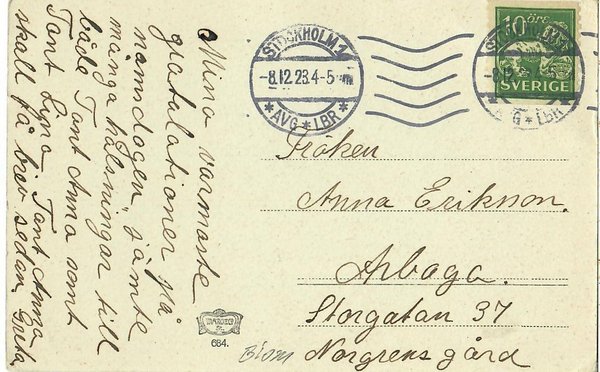 Mina varmaste
gratulationer på
namnsdagen, jämte
många hälsningar till
både Tant Anna samt
Tant Lyna. Tant Anna
skall få brev sedan. Greta
STOCKHOLM 1
-8.12.23.4-5
* AVG * LBR *
10 öre
SVERIGE
STOCKHOLM 1
-8.12
AVG * LBR
Fröken
Anna Erikson.
Arboga.
Storgatan 37
Norgrens gård
684.